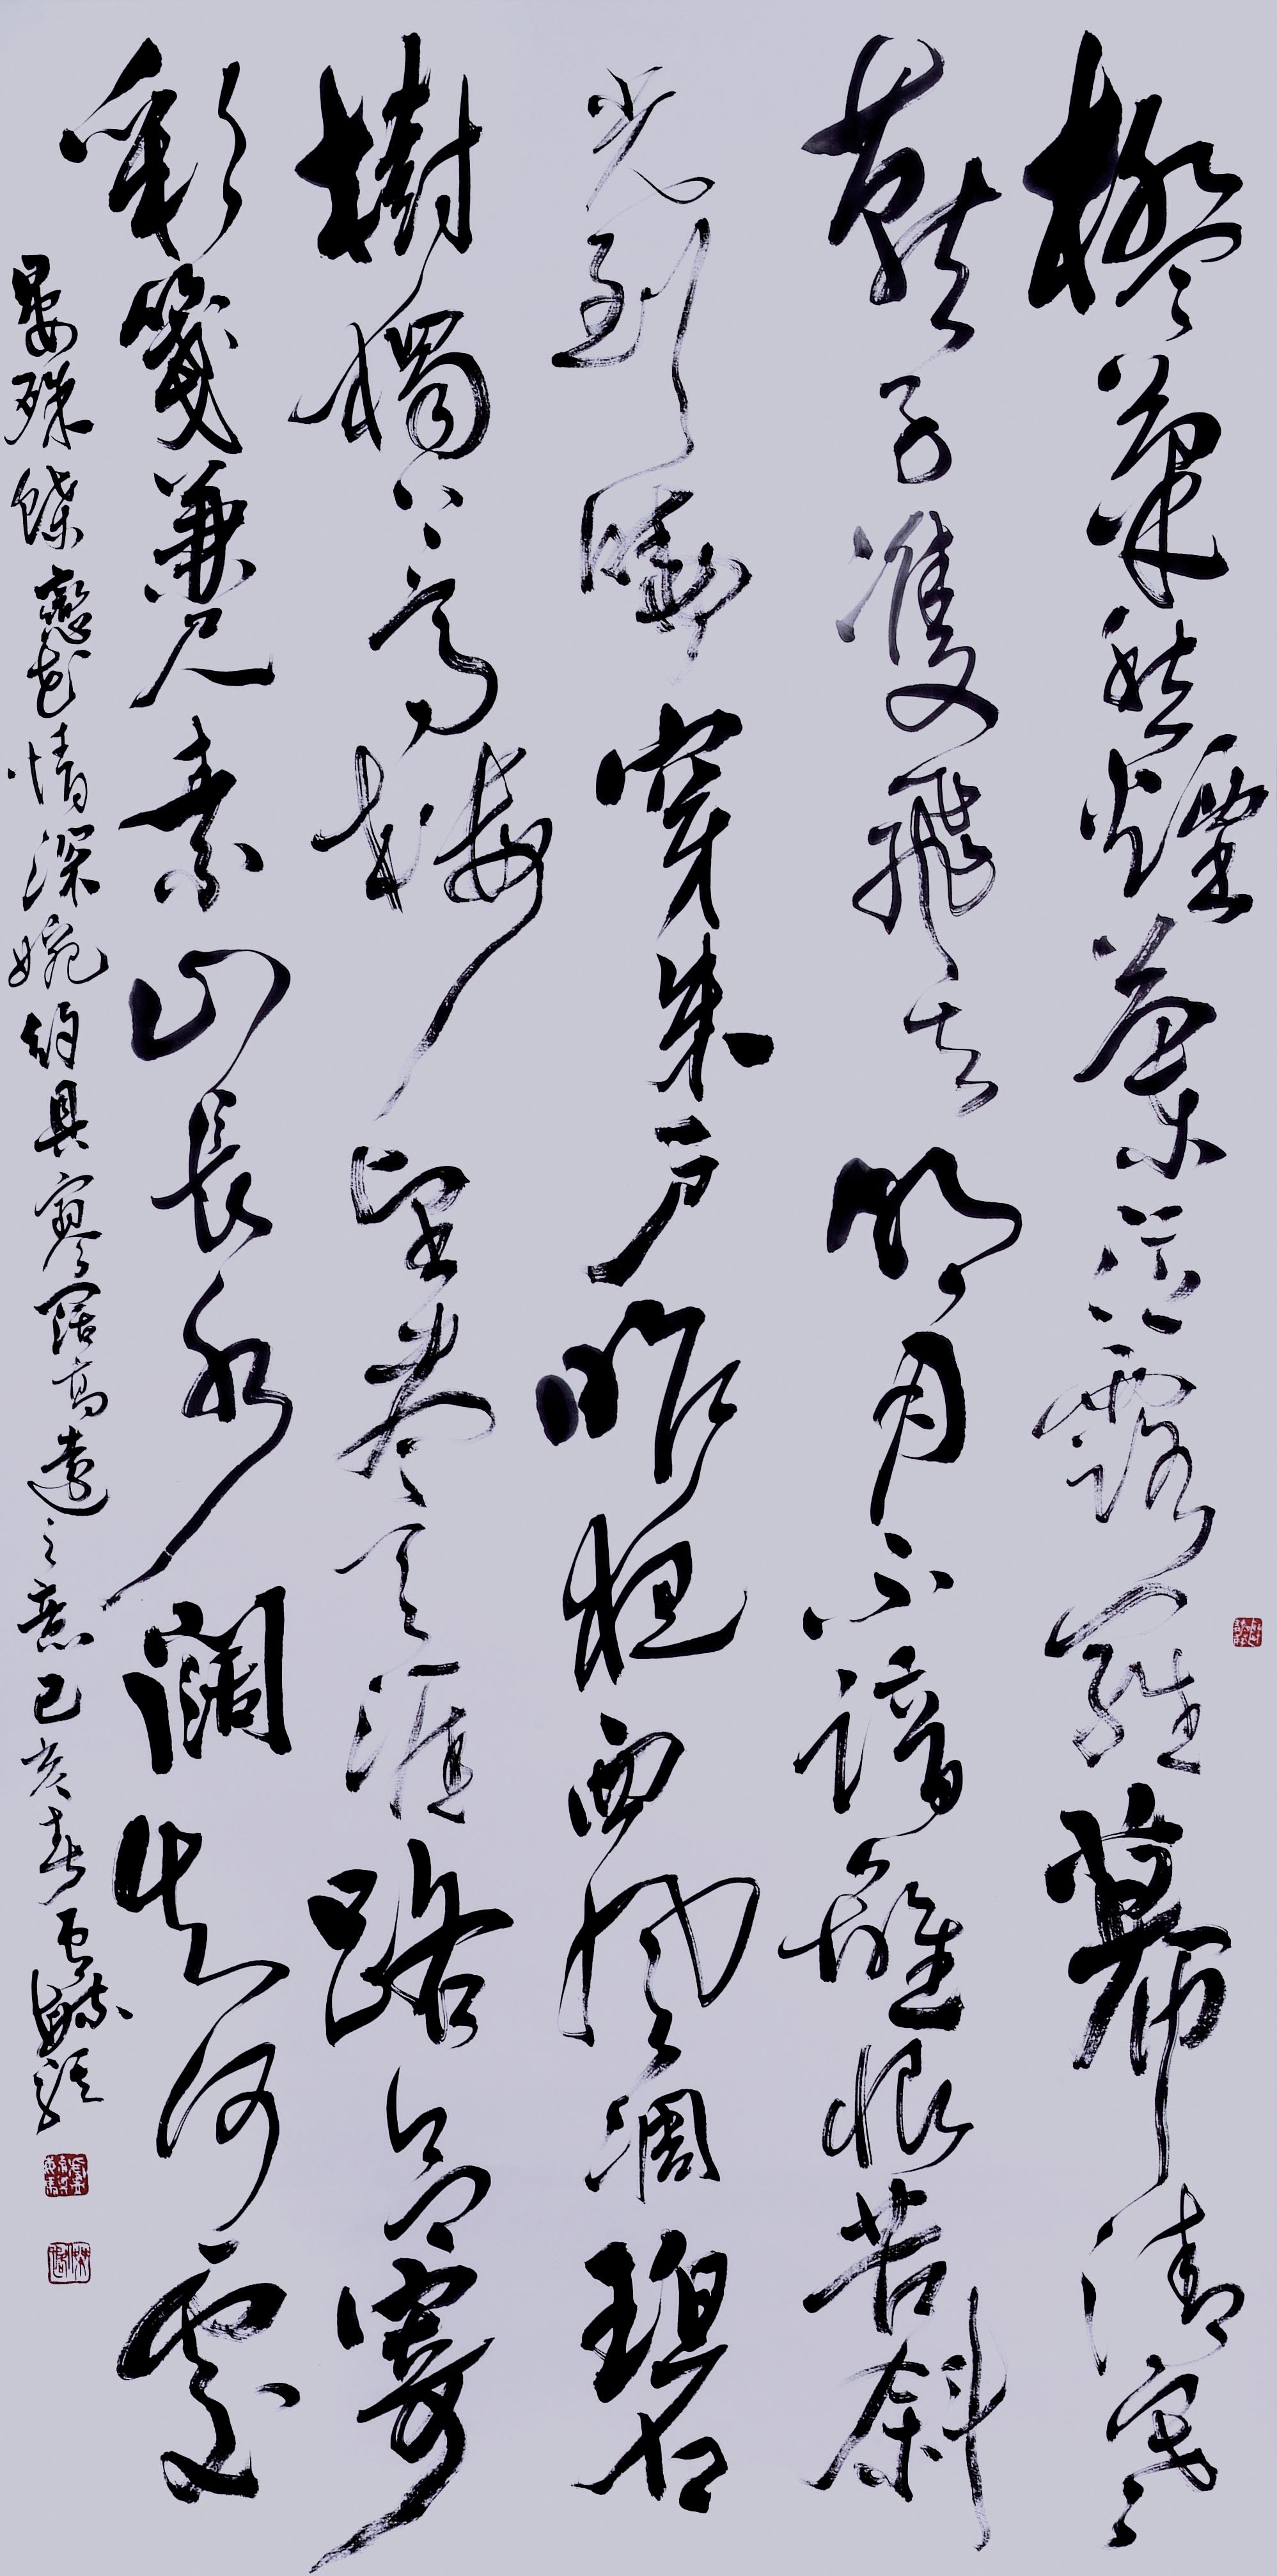 檻菊愁煙蘭泣露羅幕清寒
燕子雙飛去明月不諳離恨苦斜
光到曉穿朱戶昨夜西風凋碧
樹獨上高樓望盡天涯路欲寄
彩箋兼尺素山長水闊知何處
晏殊蝶戀花情深婉約具寥闊高遠之意己亥春